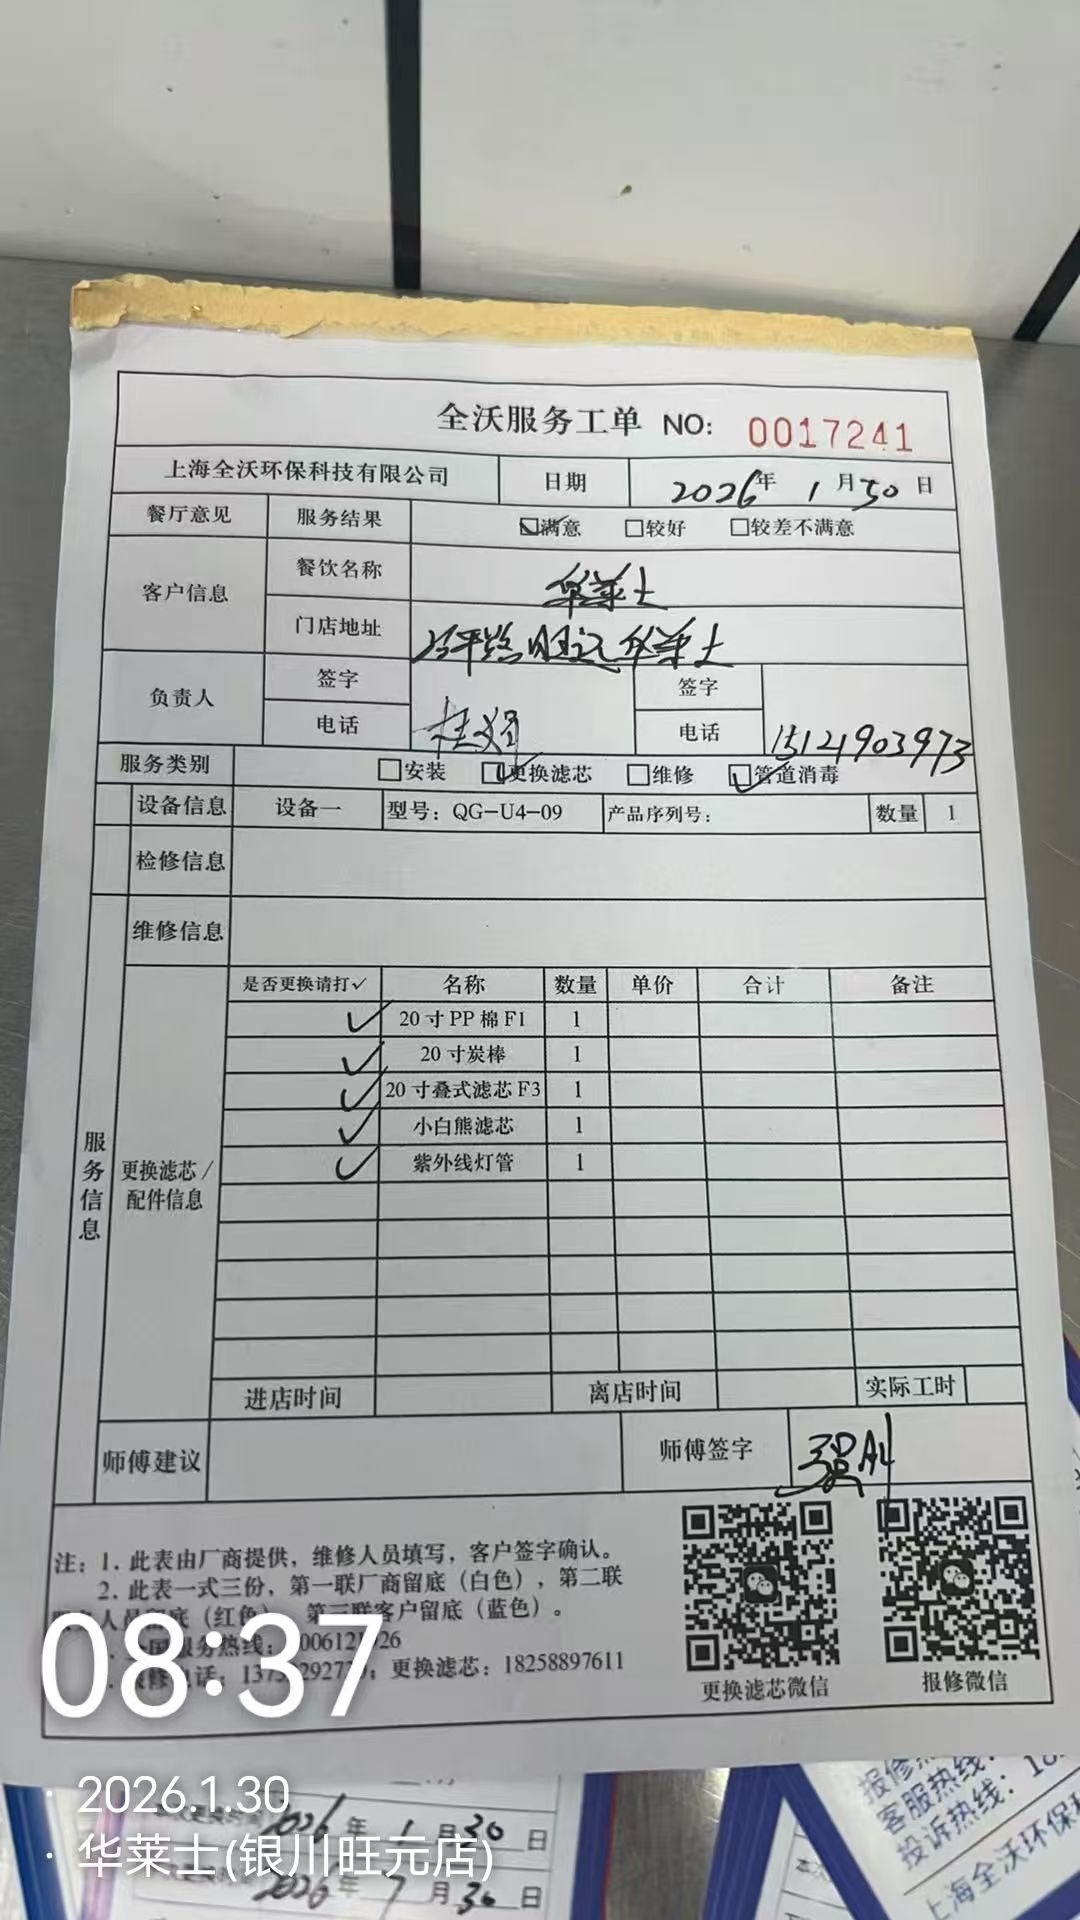 全沃服务工单 NO: 0017241
上海全沃环保科技有限公司 日期 2026年 1月30日
餐厅意见 服务结果 ☑满意 □较好 □较差不满意
客户信息 餐饮名称 华莱士
门店地址 旺元华莱士
负责人 签字 签字
电话 电话 15121903973
服务类别 □安装 ☑更换滤芯 □维修 ☑管道消毒
设备信息 设备一 型号: QG-U4-09 产品序列号: 数量 1
检修信息
维修信息
服务信息 更换滤芯/配件信息
是否更换请打✓ 名称 数量 单价 合计 备注
✓ 20寸PP棉F1 1
✓ 20寸炭棒 1
✓ 20寸叠式滤芯F3 1
✓ 小白熊滤芯 1
✓ 紫外线灯管 1
进店时间 离店时间 实际工时
师傅建议 师傅签字
注: 1. 此表由厂商提供, 维修人员填写, 客户签字确认。
2. 此表一式三份, 第一联厂商留底 (白色), 第二联
人员留底 (红色) 第三联客户留底 (蓝色)。
服务热线:
电话: 更换滤芯: 18258897611
更换滤芯微信 报修微信
08:37
2026.1.30
华莱士(银川旺元店)
2026年 1月30日
2026年 7月30日
客服热线:
投诉热线:
上海全沃环保科